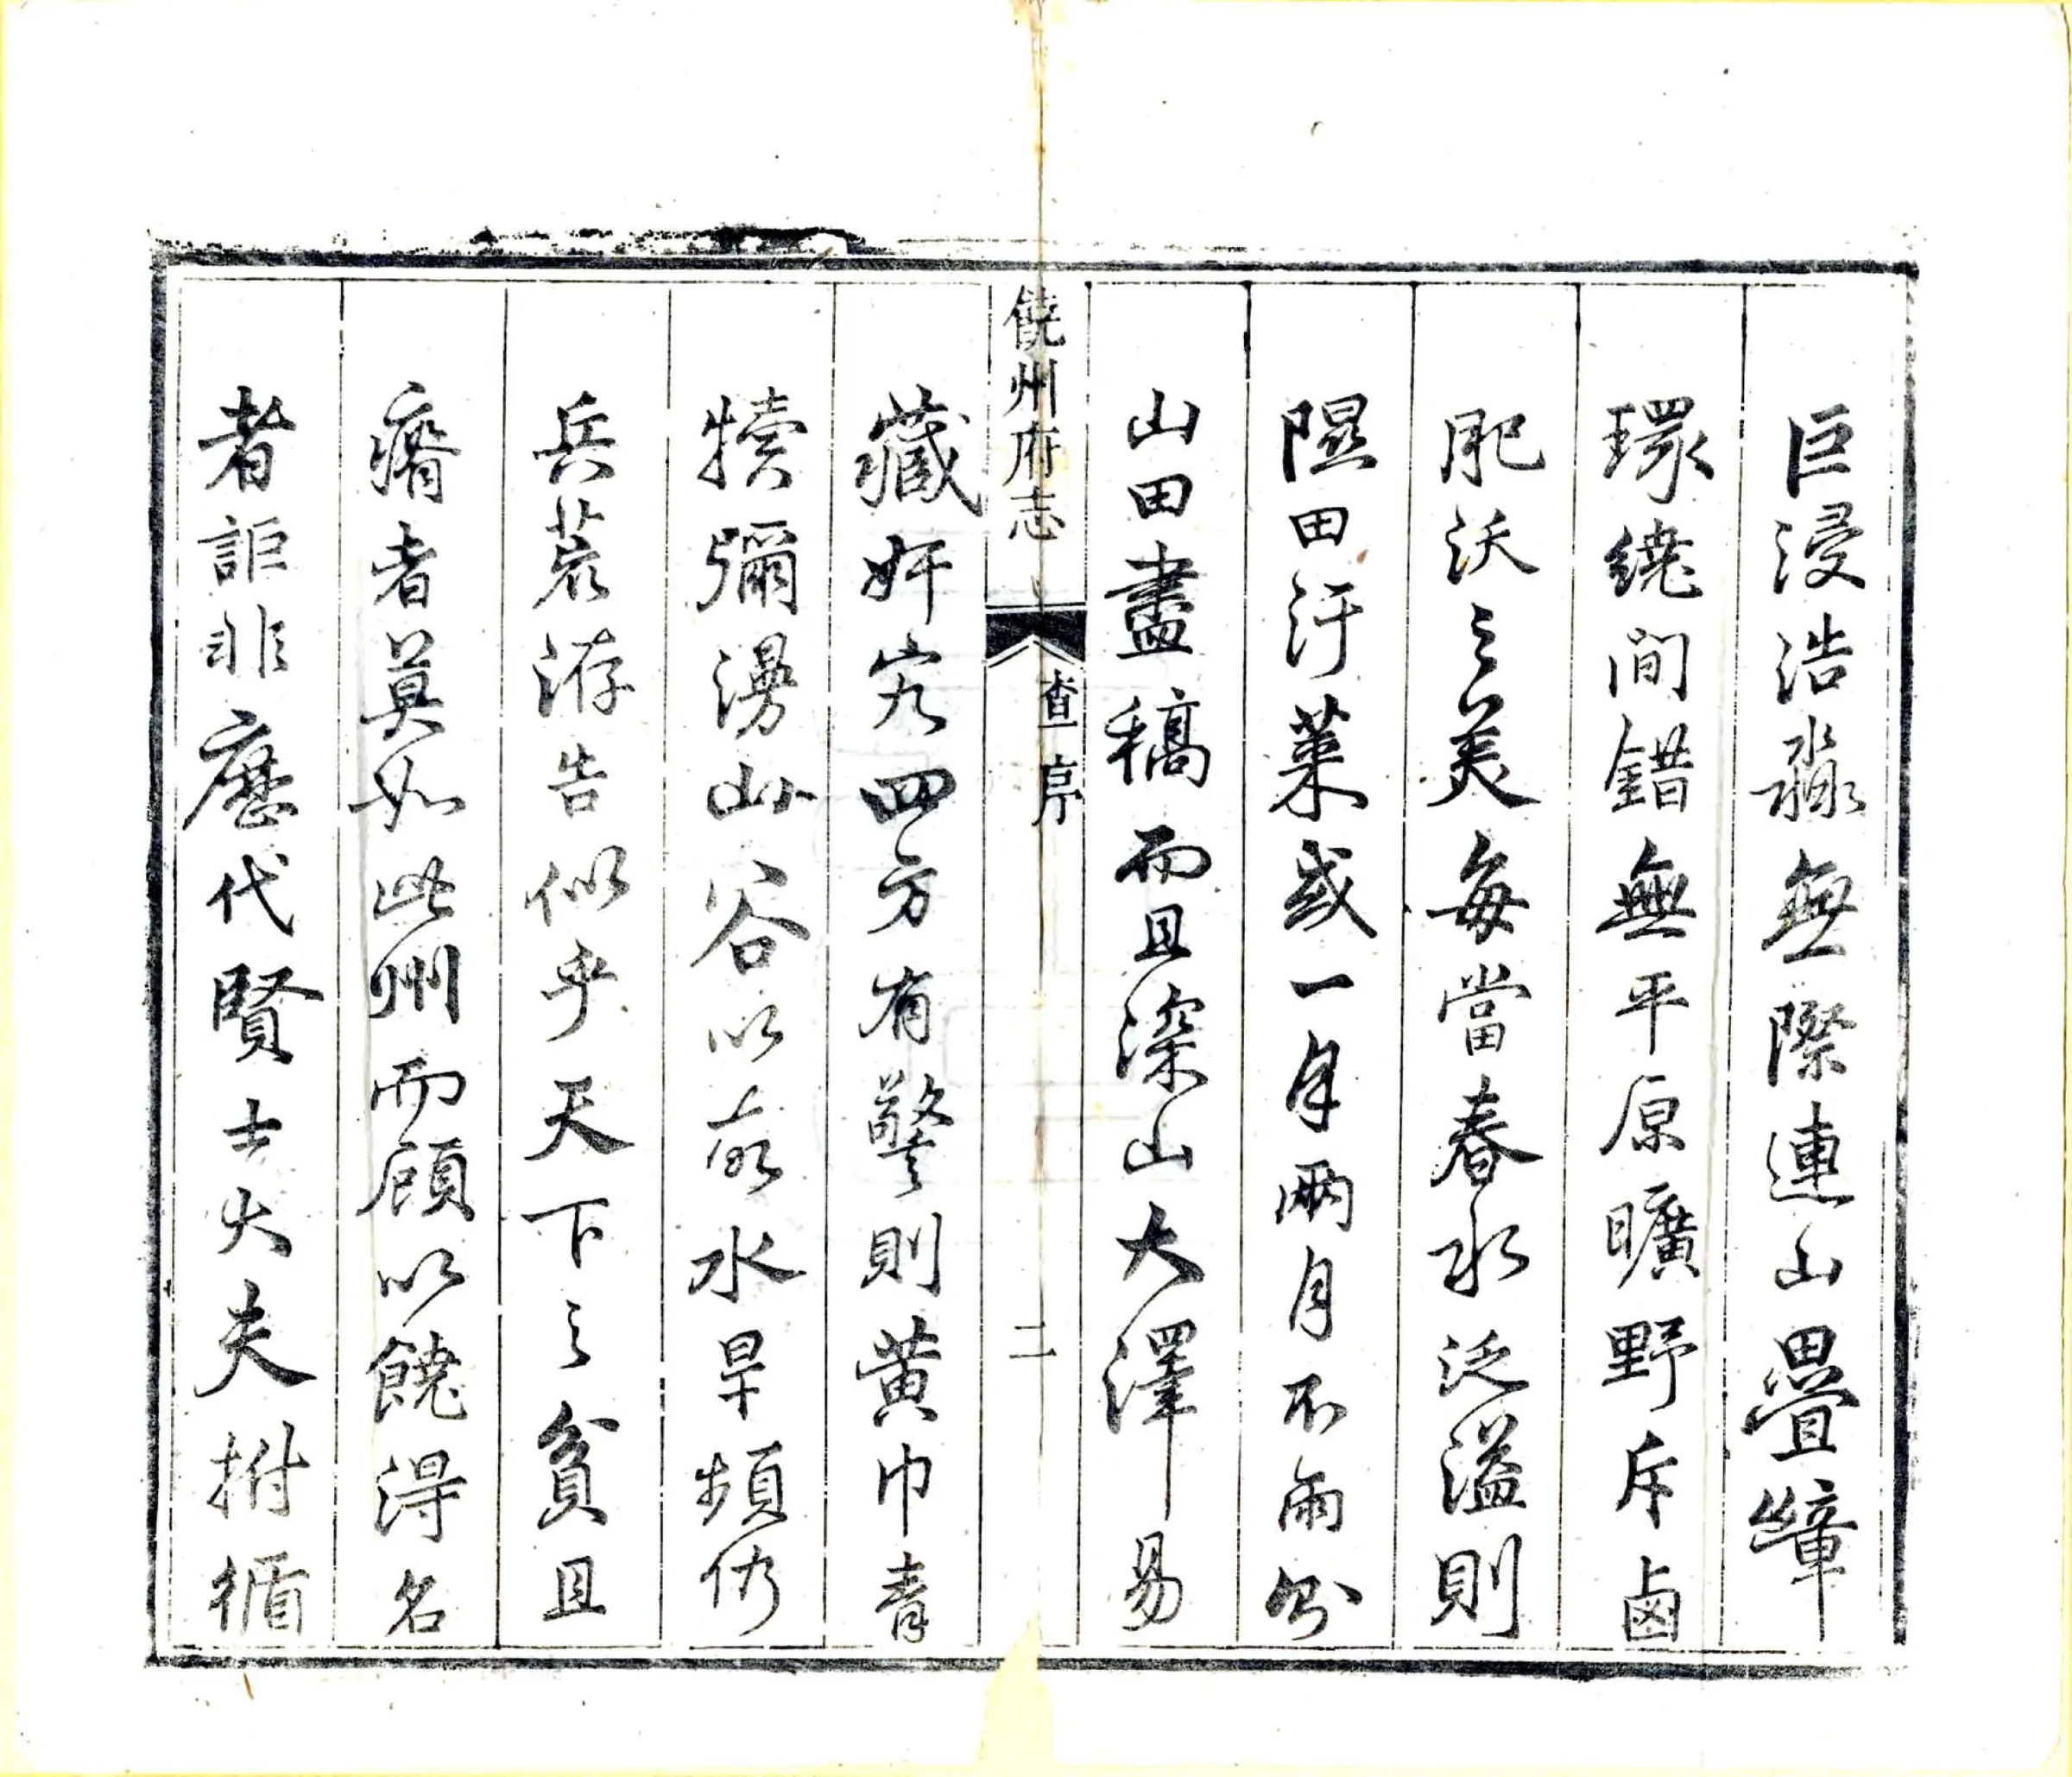 巨浸浩淼無際連山疊嶂
環繞間錯無平原曠野斥鹵
肥沃之美每當春水泛溢則
隰田汙萊或一月兩月不雨則
山田盡稿而且深山大澤易
饒州府志
查序
二
藏奸宄四方有警則黃巾青
犢瀰漫山谷以故水旱頻仍
兵荒洊告似乎天下之貧且
瘠者莫如此州而顧以饒得名
者詎非歷代賢士大夫拊循